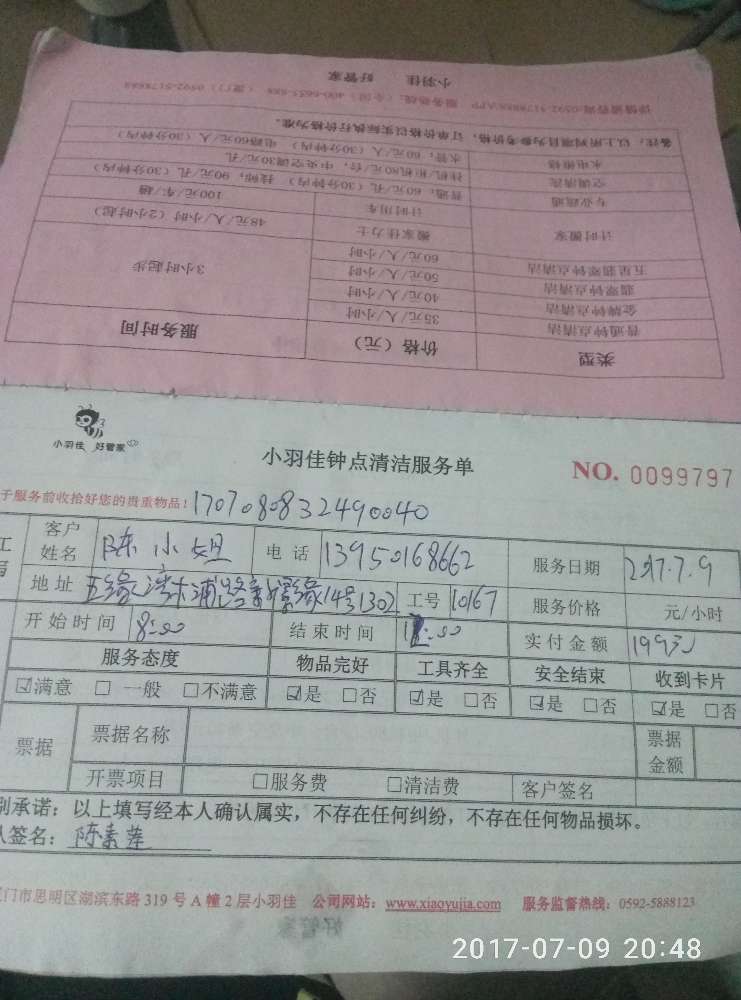 小羽佳 好管家
详情请咨询:0592-5178888/APP 服务热线:(全国)400-6655-888 (厦门)0592-5178888
备注:以上所列项目为参考价格,订单价格以实际执行价格为准。
水电维修 水管:60元/人(30分钟内) 电路60元/人(30分钟内)
空调清洗 挂机/柜机80元/台,中央空调30元/孔
专业疏通 普通:60元/孔(30分钟内) 技师:90元/孔(30分钟内)
计时搬家 计时用车 100元/车/趟
搬家佳力士 48元/人/小时(2小时起)
五星翡翠钟点清洁 60元/人/小时 3小时起步
翡翠钟点清洁 50元/人/小时
金牌钟点清洁 40元/人/小时
普通钟点清洁 35元/人/小时
类型 价格(元) 服务时间
小羽佳 好管家
小羽佳钟点清洁服务单 NO. 0099797
于服务前收拾好您的贵重物品! 1707080832490040
客户姓名 陈小姐 电话 13950168662 服务日期 2017.7.9
地址 14号1302 工号 10167 服务价格 元/小时
开始时间 8:00 结束时间 实付金额
服务态度 物品完好 工具齐全 安全结束 收到卡片
☑满意 □一般 □不满意 ☑是 □否 ☑是 □否 ☑是 □否 ☑是 □否
票据 票据名称 票据金额
开票项目 □服务费 □清洁费 客户签名
别承诺:以上填写经本人确认属实,不存在任何纠纷,不存在任何物品损坏。
人签名:陈素莲
门市思明区湖滨东路 319 号 A 幢 2 层小羽佳 公司网站:www.xiaoyujia.com 服务监督热线:0592-5888123
好管家
2017-07-09 20:48